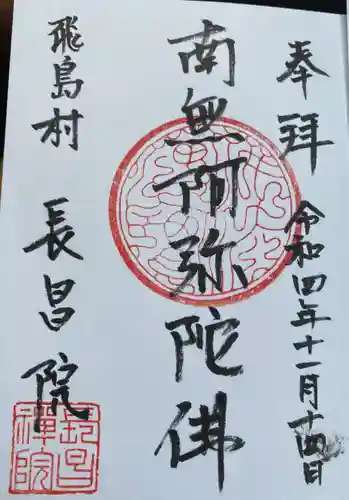 奉拝
令和四年十一月十四日
南無阿弥陀佛
飛島村
長昌院
長昌
禅院